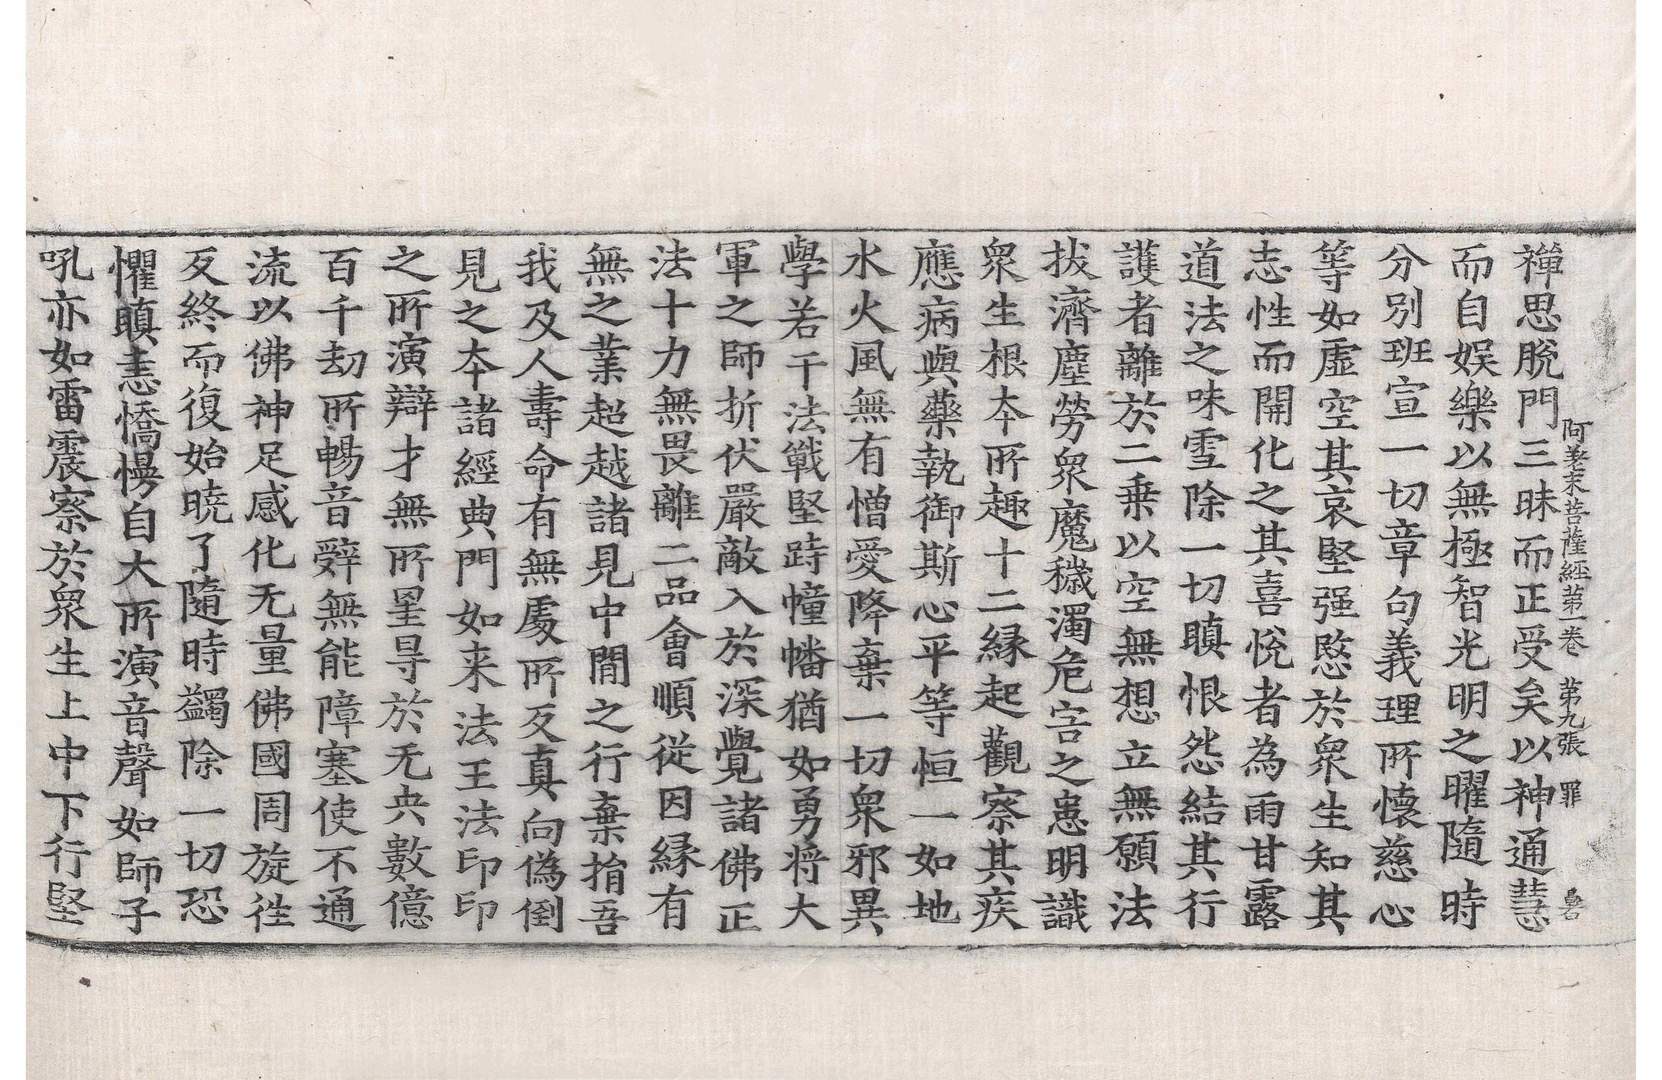 阿差末菩薩經第一卷 第九張 罪
禪思脫門三昧而正受矣以神通慧
而自娛樂以無極智光明之曜隨時
分別班宣一切章句義理所懷慈心
等如虛空其哀堅强愍於衆生知其
志性而開化之其喜悅者為雨甘露
道法之味雪除一切瞋恨怨結其行
護者離於二乗以空無想立無願法
拔濟塵勞衆魔穢濁危害之患明識
衆生根夲所趣十二縁起觀察其疾
應病與藥執御斯心平等恒一如地
水火風無有憎愛降棄一切衆邪異
學若干法戰堅跱幢幡猶如勇將大
軍之師折伏嚴敵入於深覺諸佛正
法十力無畏離二品會順從因縁有
無之業超越諸見中間之行棄捐吾
我及人壽命有無處所反真向偽倒
見之夲諸經典門如来法王法印印
之所演辯才無所罣㝵於无央數億
百千劫所暢音辝無能障塞使不通
流以佛神足感化无量佛國周旋徃
反終而復始曉了隨時蠲除一切恐
懼瞋恚憍慢自大所演音聲如師子
吼亦如雷震察於衆生上中下行堅